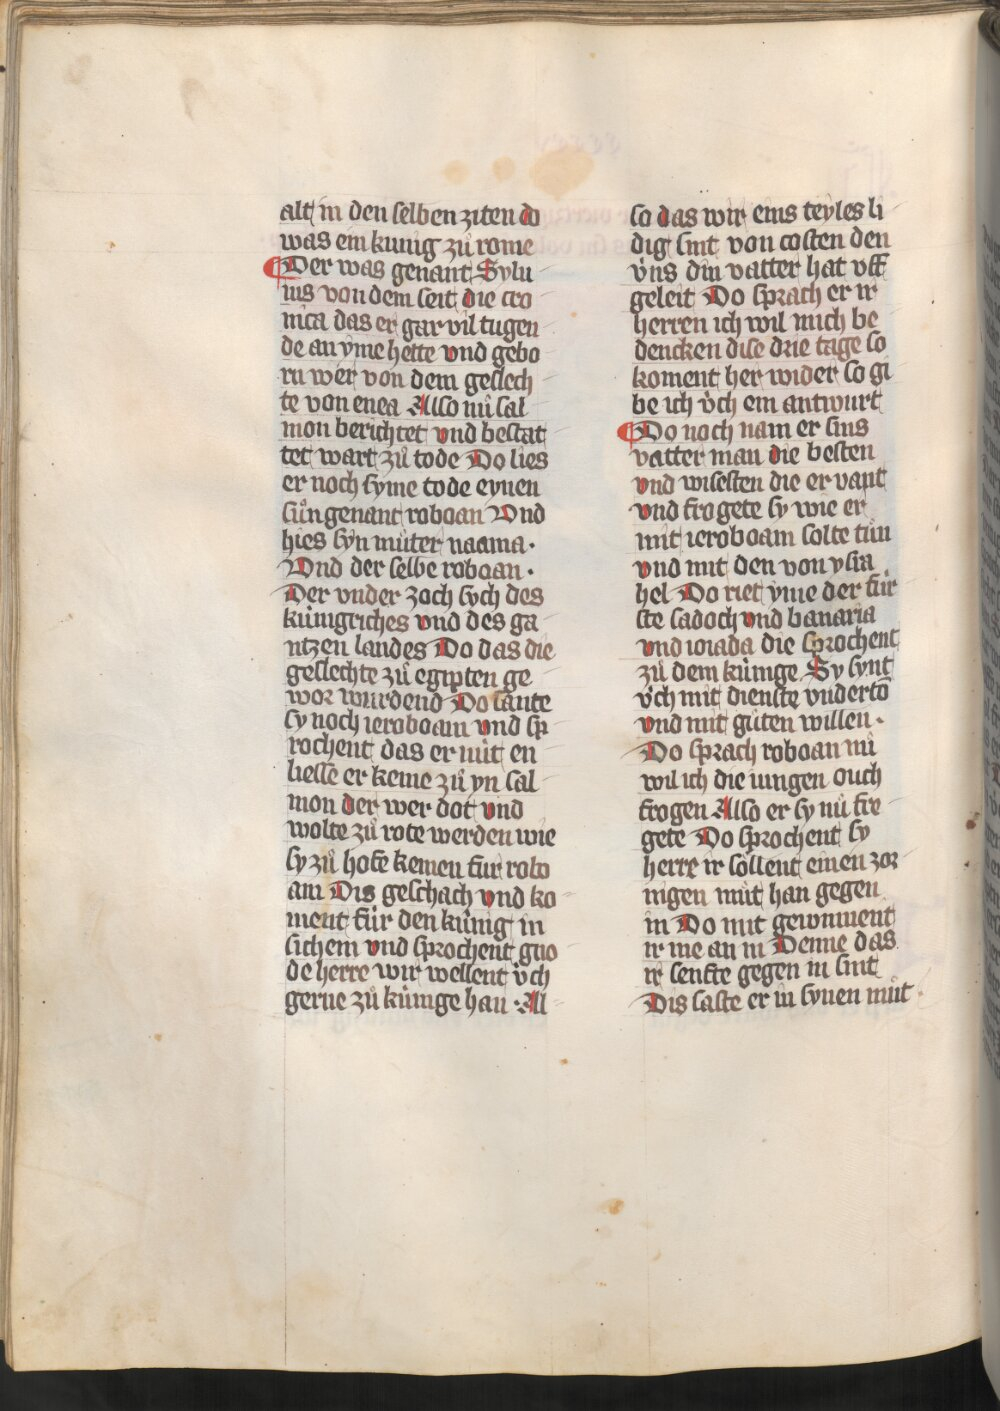 alt in den selben ziten do
was ein kunig zů rome
Der was genant Sylu
ius von dem seit die cro
nica das er gar vil tugen
de an yme hette vnd gebo
rn wer von dem geslech
te von enea Also nů sal
mon berichtet vnd bestat
tet wart zů tode Do lies
er noch syme tode eynen
sůn genant roboan Vnd
hies syn můter naama·
Vnd der selbe roboan·
Der vnder zoch sych des
kůnigriches vnd des ga
ntzen landes Do das die
geslechte zů egipten ge
wor wurdend Do sante
sy noch ieroboam vnd sp
rochent das er nůt en
liesse er keme zů yn sal
mon der wer dot vnd
wolte zů rote werden wie
sy zů hofe kemen fur robo
am Dis geschach vnd ko
ment fůr den kůnig in
sichem vnd sprochent guo
de herre wir wellent v̊ch
gerne zů kůnige han · Al
so das wir eins teyles li
dig sint von costen den
v̊ns din vatter hat vff
geleit Do sprach er ir
herren ich wil mich be
dencken dise drie tage so
koment her wider so gi
be ich v̊ch ein antwurt
Do noch nam er sins
vatter man die besten
vnd wisesten die er vant
vnd frogete sy wie er
mit ieroboam solte tůn
vnd mit den von ysra
hel Do riet yme der fůr
ste sadoch vnd banaria
vnd ioiada die sprochent
zů dem kůnige Sy synt
v̊ch mit dienste vndertō
vnd mit gůten willen·
Do sprach roboan nů
wil ich die iungen ouch
frogen Also er sy nů fro
gete Do sprochent sy
herre ir sollent einen zor
nigen můt han gegen
in Do mit gewinnent
ir me an in Denne das
ir senfte gegen in sint
Dis saste er in synen můt ·